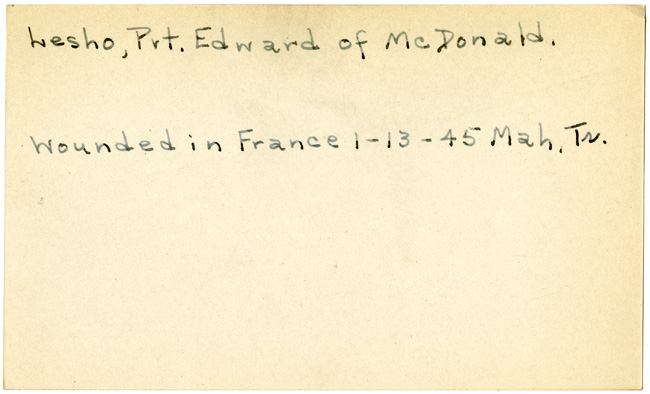 Lesho, Pvt. Edward of McDonald.
Wounded in France 1-13-45 Mah, Tr.